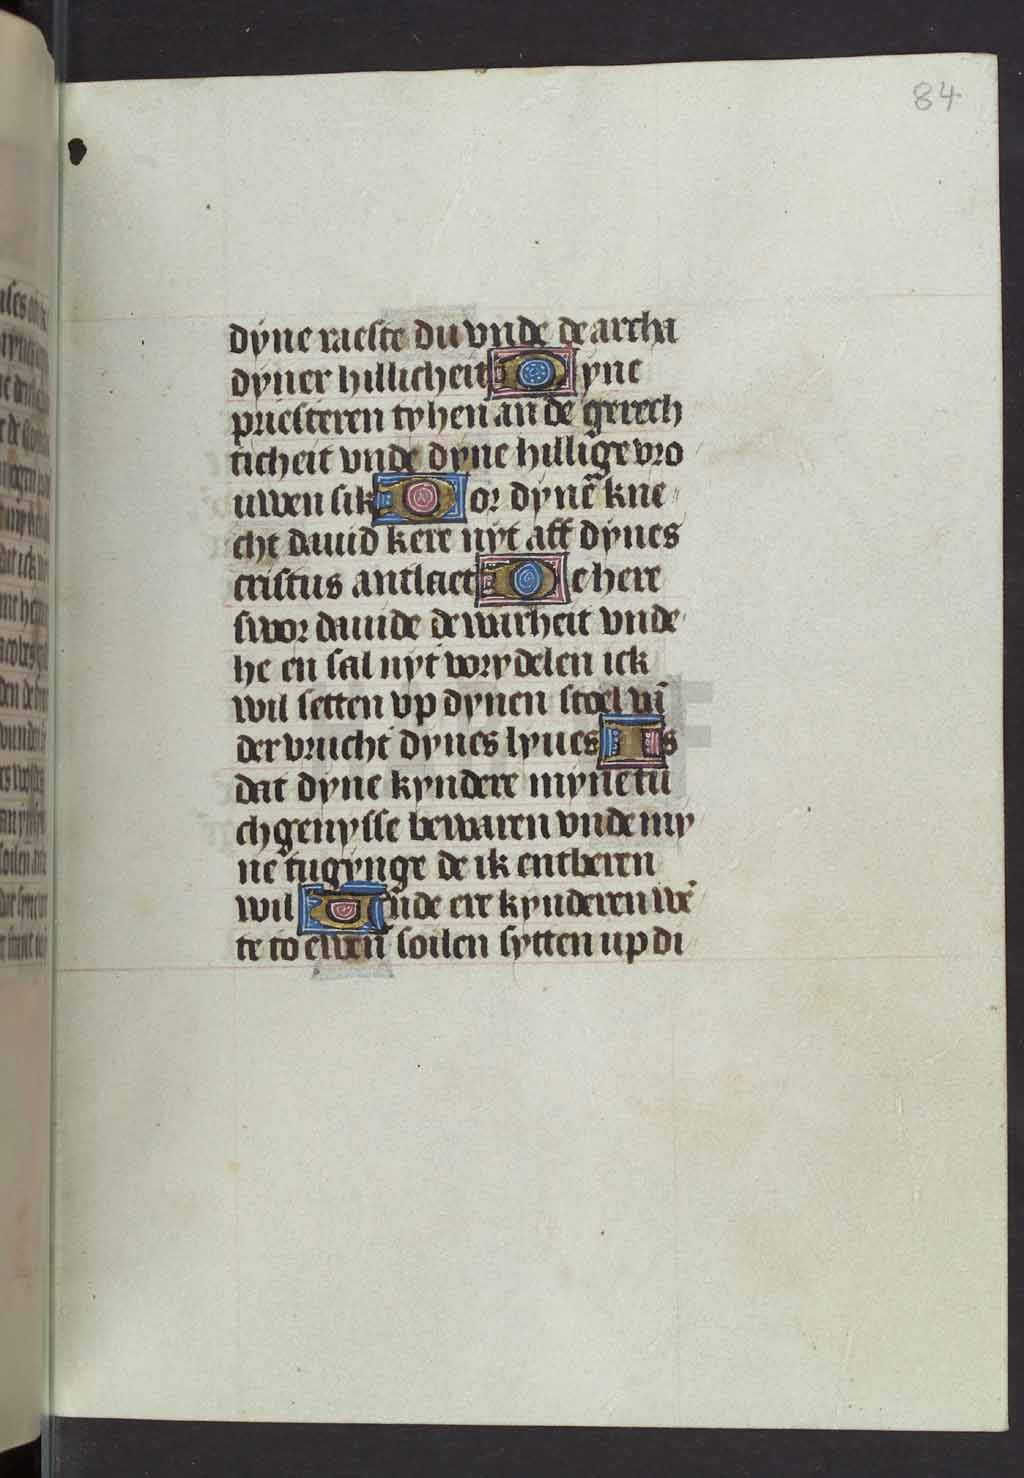 84
dyne raeste du vnde de archa
dyner hillicheit Dyne
priesteren tyhen an de gerech
ticheit vnde dyne hillige vro
uwen sik Dor dynē kne
cht dauid kere nyt aff dynes
cristus antlaet De here
swor dauide de warheit vnde
he en sal nyt vorydelen ick
wil setten vp dynen stoel vā
der vrucht dynes lyues Is
dat dyne kyndere myne tu
chgenysse bewaren vnde my
ne tugynge de ik entberen
wil Ūnde ere kynderen wē
te to ewen soilen sytten up di